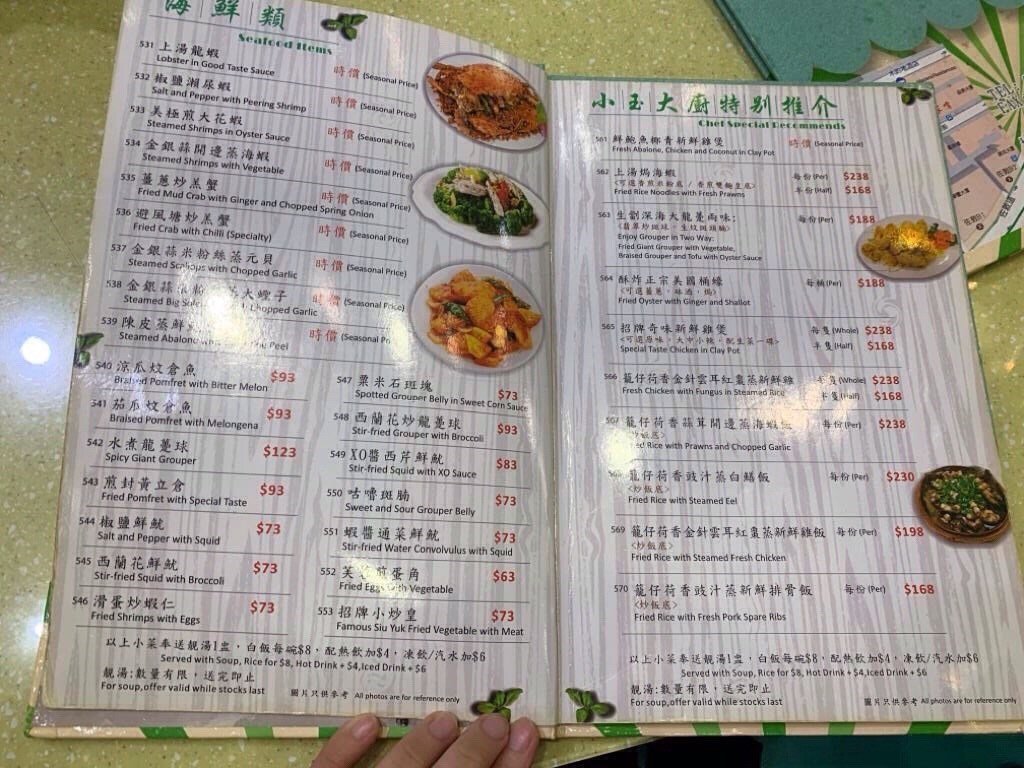 海鮮類
Seafood Items
531 上湯龍蝦 時價 (Seasonal Price)
Lobster in Good Taste Sauce
532 椒鹽瀨尿蝦 時價 (Seasonal Price)
Salt and Pepper with Peering Shrimp
533 美極煎大花蝦 時價 (Seasonal Price)
Steamed Shrimps in Oyster Sauce
534 金銀蒜開邊蒸海蝦 時價 (Seasonal Price)
Steamed Shrimps with Vegetable
535 薑蔥炒羔蟹 時價 (Seasonal Price)
Fried Mud Crab with Ginger and Chopped Spring Onion
536 避風塘炒羔蟹 時價 (Seasonal Price)
Fried Crab with Chilli (Specialty)
537 金銀蒜米粉絲蒸元貝 時價 (Seasonal Price)
Steamed Scallops with Chopped Garlic
538 金銀蒜米粉 蒸大蟶子 時價 (Seasonal Price)
Steamed Big Chopped Garlic
539 陳皮蒸鮮 時價 (Seasonal Pri
Steamed Abalone Peel
540 涼瓜炆倉魚 $93
Braised Pomfret with Bitter Melon
541 茄瓜炆倉魚 $93
Braised Pomfret with Melongena
542 水煮龍躉球 $123
Spicy Giant Grouper
543 煎封黃立倉 $93
Fried Pomfret with Special Taste
544 椒鹽鮮魷 $73
Salt and Pepper with Squid
545 西蘭花鮮魷 $73
Stir-fried Squid with Broccoli
546 滑蛋炒蝦仁 $73
Fried Shrimps with Eggs
547 粟米石斑塊 $73
Spotted Grouper Belly in Sweet Corn Sauce
548 西蘭花炒龍躉球 $93
Stir-fried Grouper with Broccoli
549 XO醬西芹鮮魷 $83
Stir-fried Squid with XO Sauce
550 咕嚕斑腩 $73
Sweet and Sour Grouper Belly
551 蝦醬通菜鮮魷 $73
Stir-fried Water Convolvulus with Squid
552 芙蓉煎蛋角 $63
Fried Eggs with Vegetable
553 招牌小炒皇 $73
Famous Siu Yuk Fried Vegetable with Meat
以上小菜奉送靚湯1盅，白飯每碗$8，配熱飲加$4，凍飲/汽水加$6
Served with Soup, Rice for $8, Hot Drink + $4,Iced Drink + $6
靚湯:數量有限，送完即止
For soup,offer valid while stocks last
圖片只供參考 All photos are for reference only
小玉大廚特別推介
Chef Special Recommends
561 鮮鮑魚椰青新鮮雞煲 時價 (Seasonal Price)
Fresh Abalone, Chicken and Coconut in Clay Pot
562 上湯焗海蝦 每份(Per) $238
<可選香煎米粉底 / 香煎雙麵皇底> 半份(Half) $168
Fried Rice Noodles with Fresh Prawns
563 生劏深海大龍躉兩味: 每份(Per) $188
<翡翠炒斑球，生炆斑頭腩>
Enjoy Grouper in Two Way:
Fried Giant Grouper with Vegetable,
Braised Grouper and Tofu with Oyster Sauce
564 酥炸正宗美國桶蠔 每桶(Per) $188
Fried Oyster with Ginger and Shallot
565 招牌奇味新鮮雞煲 每隻(Whole) $238
<可選原味，大中小辣，配生菜一碟> 半隻(Half) $168
Special Taste Chicken in Clay Pot
566 籠仔荷香金針雲耳紅棗蒸新鮮雞 每隻(Whole) $238
Fresh Chicken with Fungus in Steamed Rice 半隻(Half) $168
籠仔荷香蒜茸開邊蒸海蝦飯 每份(Per) $238
<炒飯底>
Fried Rice with Prawns and Chopped Garlic
籠仔荷香豉汁蒸白鱔飯 每份(Per) $230
<炒飯底>
Fried Rice with Steamed Eel
569 籠仔荷香金針雲耳紅棗蒸新鮮雞飯 每份(Per) $198
<炒飯底>
Fried Rice with Steamed Fresh Chicken
570 籠仔荷香豉汁蒸新鮮排骨飯 每份(Per) $168
<炒飯底>
Fried Rice with Fresh Pork Spare Ribs
以上小菜奉送靚湯1盅，白飯每碗$8，配熱飲加$4，凍飲/汽水加$6
Served with Soup, Rice for $8, Hot Drink + $4,Iced Drink + $6
靚湯:數量有限，送完即止
For soup,offer valid while stocks last
圖片只供參考 All photos are for reference only